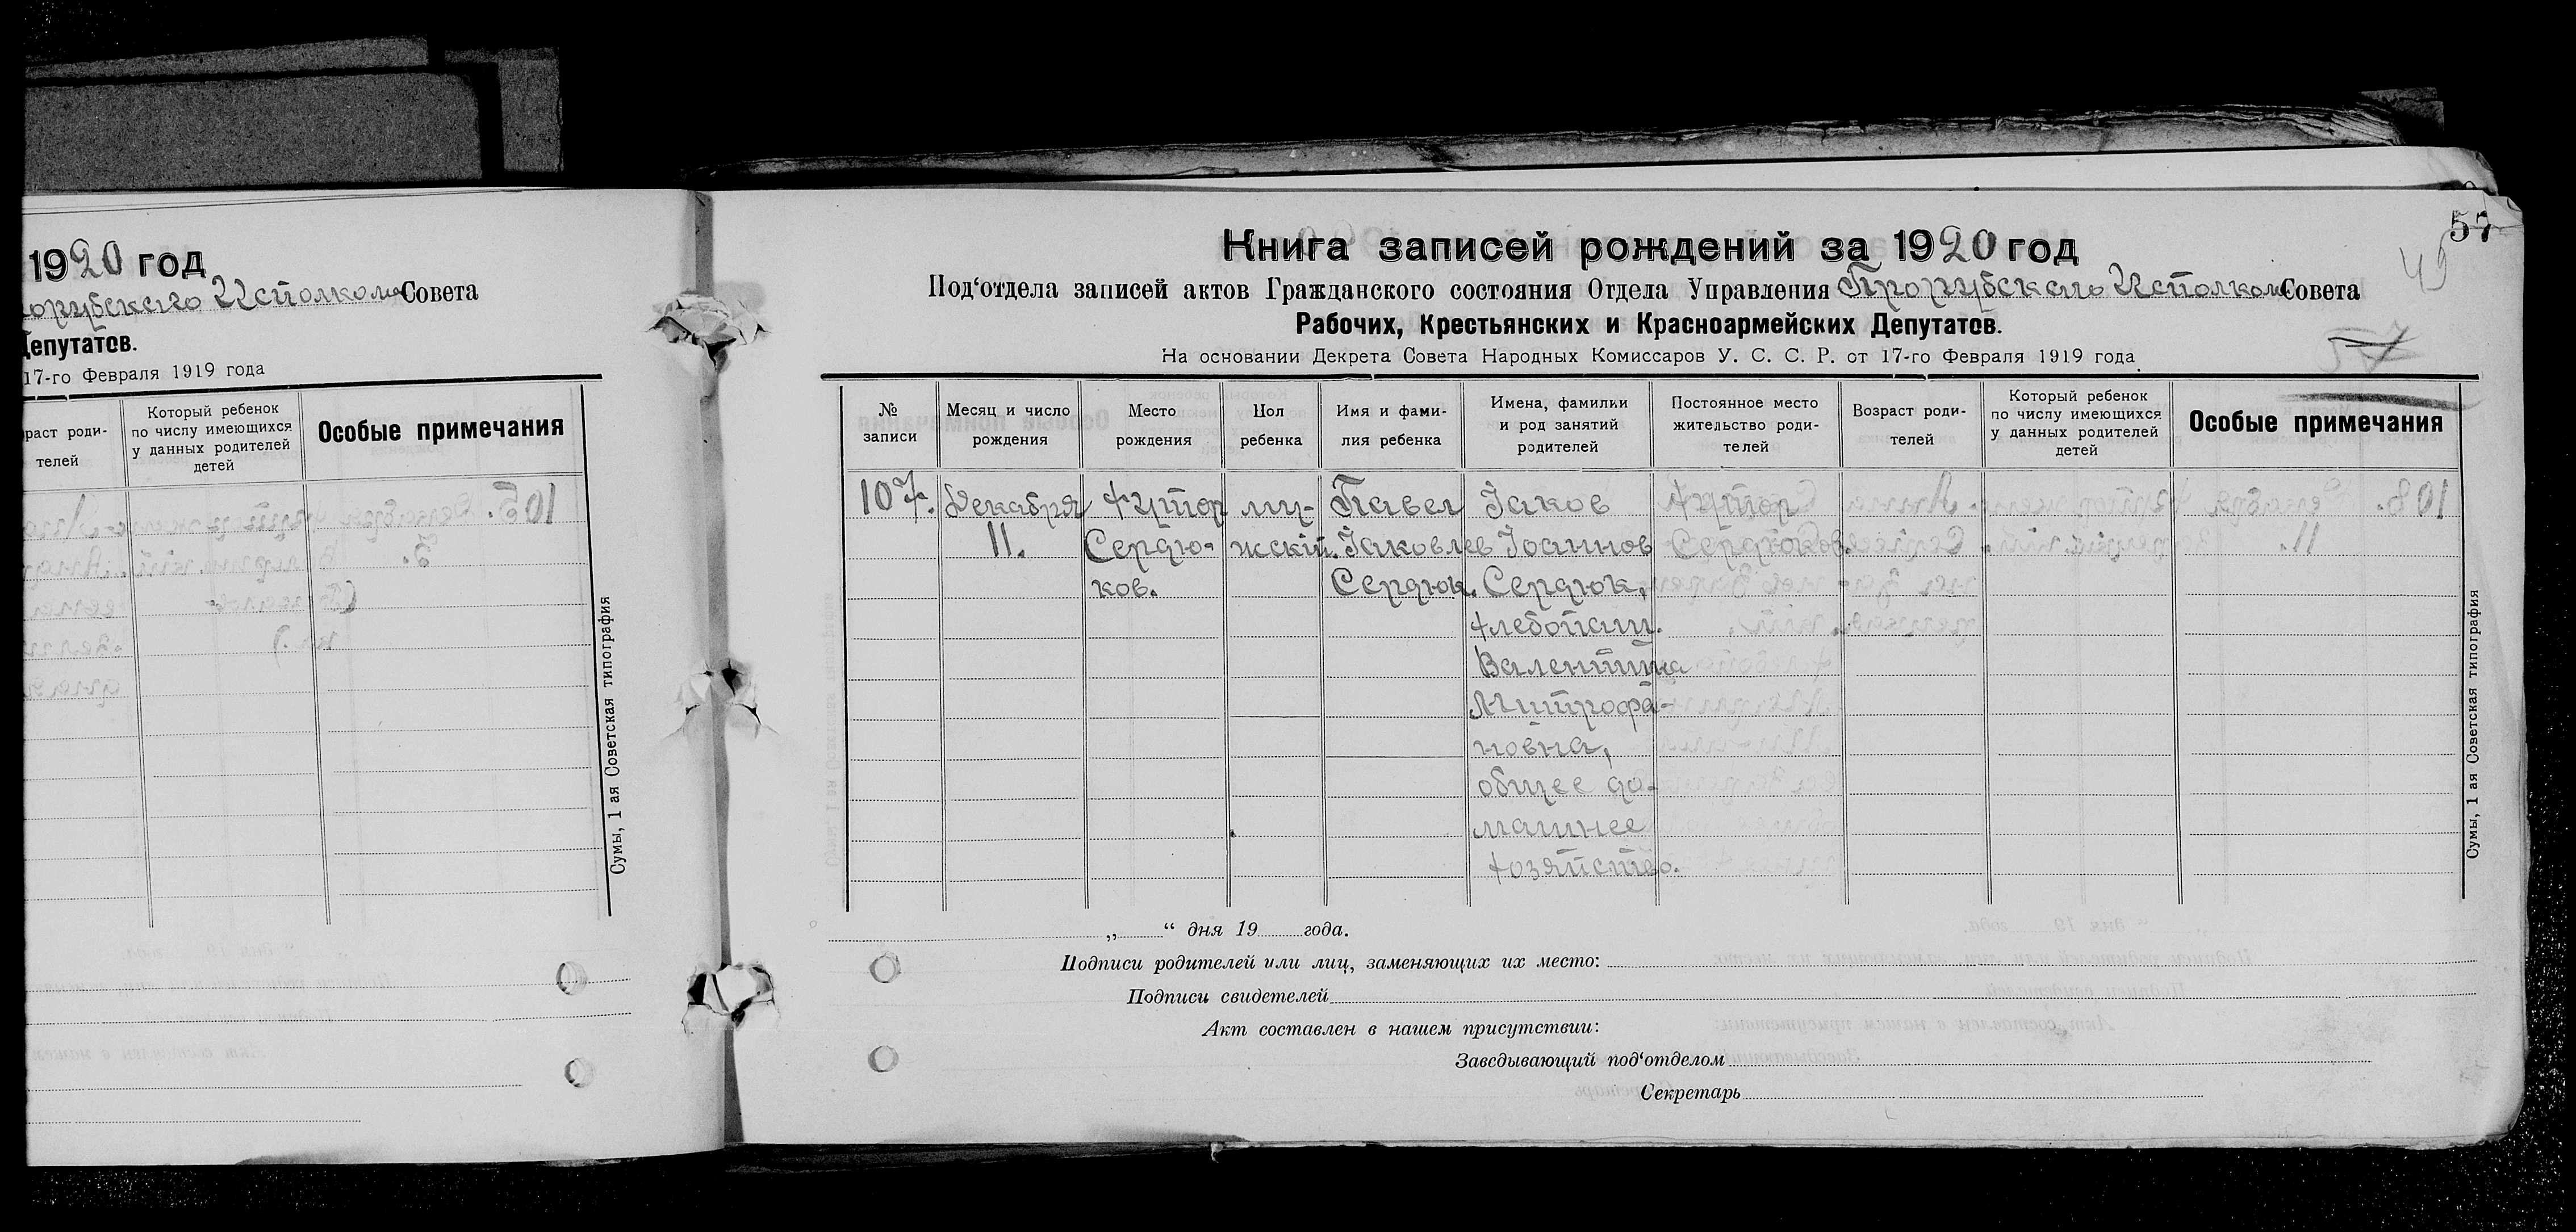 1920 год
Исполкома Совета
Депутатов.
17-го Февраля 1919 года
раст роди-
телей
Который ребенок
по числу имеющихся
у данных родителей
детей
Особые примечания
Сумы, 1 ая Советская типография
57
49
57
Книга записей рождений за 1920 год
Под‘отдела записей актов Гражданского состояния Отдела Управления Прорубского Исполкома Совета
Рабочих, Крестьянских и Красноармейских Депутатов.
На основании Декрета Совета Народных Комиссаров У. С. С. Р. от 17-го Февраля 1919 года
№
записи
Месяц и число
рождения
Место
рождения
Пол
ребенка
Имя и фами-
лия ребенка
Имена, фамилии
и род занятий
родителей
Постоянное место
жительство роди-
телей
Возраст роди-
телей
Который ребенок
по числу имеющихся
у данных родителей
детей
Особые примечания
107.
Декабря
11.
Хутор
Сердю-
ков.
му-
жскій.
Павел
Іаковлев
Сердюк.
Іаков
Іоаннов
Сердюк,
хлебопаш.
Валентина
Митрофа-
новна,
общее до-
машнее
хозяйство.
Хутор
Сердюков.
„ “ дня 19 года.
Подписи родителей или лиц, заменяющих их место:
Подписи свидетелей
Акт составлен в нашем присутствии:
Заведывающий под‘отделом
Секретарь
Сумы, 1 ая Советская типография